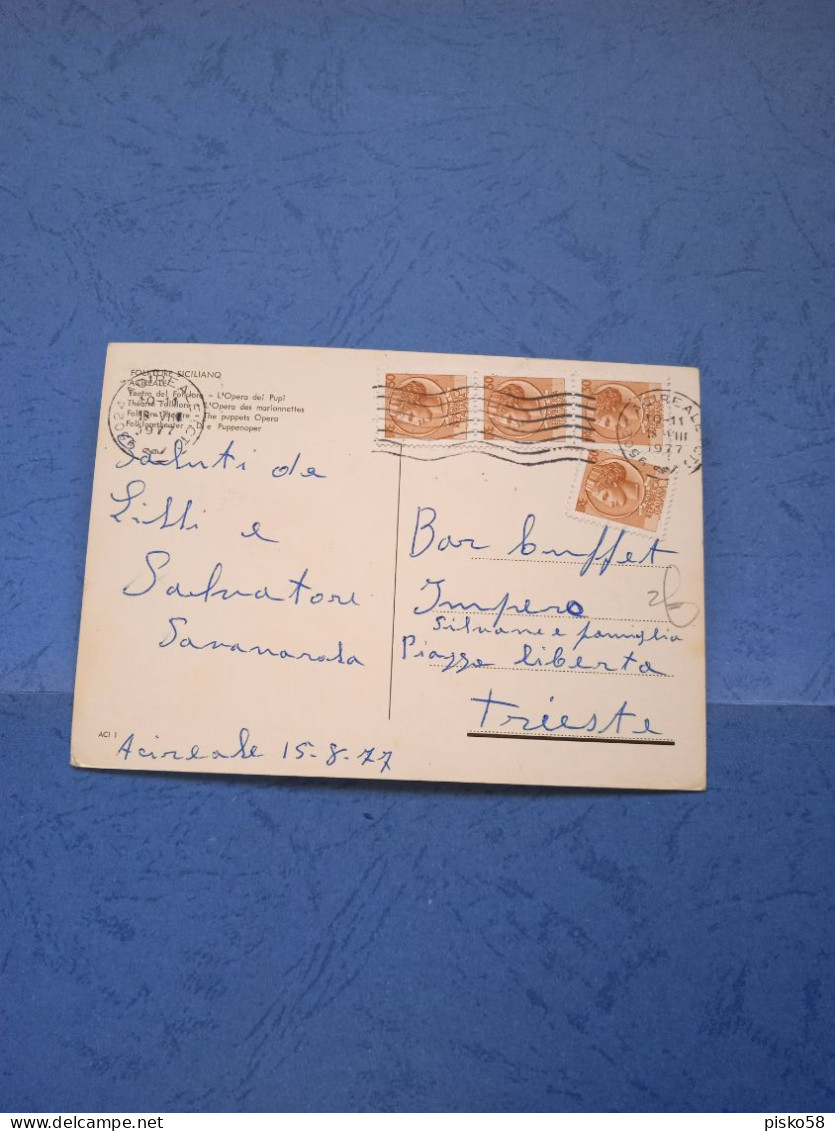 FOLKLORE SICILIANO
ACIREALE
Teatro del Folklore - L'Opera dei Pupi
Théatre Folklore - L'Opera des marionnettes
Folklore Theatre - The puppets Opera
Folkloretheater - Die Puppenoper
95024 ACIREALE (CT)
10-11
18-VIII
1977
ACIREALE (CT)
10-11
18-VIII
1977
Saluti da
Lilli e
Salvatore
Savanarola
Acireale 15-8-77
ACI 1
Bar buffet
Impero
Silvane e famiglia
Piazza liberta
Trieste
26
delcampe.net
pisko58